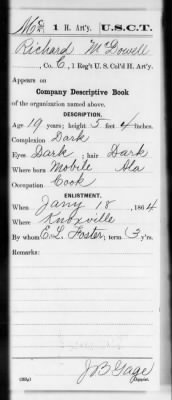 Mc | 1 H. Art'y. | U.S.C.T.
Richard McDowell
, Co. C, 1 Reg't U. S. Col'd H. Art'y.
Appears on
Company Descriptive Book
of the organization named above.
DESCRIPTION.
Age 19 years; height 5 feet 4 inches.
Complexion Dark
Eyes Dark ; hair Dark
Where born Mobile Ala
Occupation Cook
ENLISTMENT.
When Jany 18 , 1864
Where Knoxville
By whom E. L. Foster; term 3 y'rs.
Remarks:
J B Gage
Copyist.